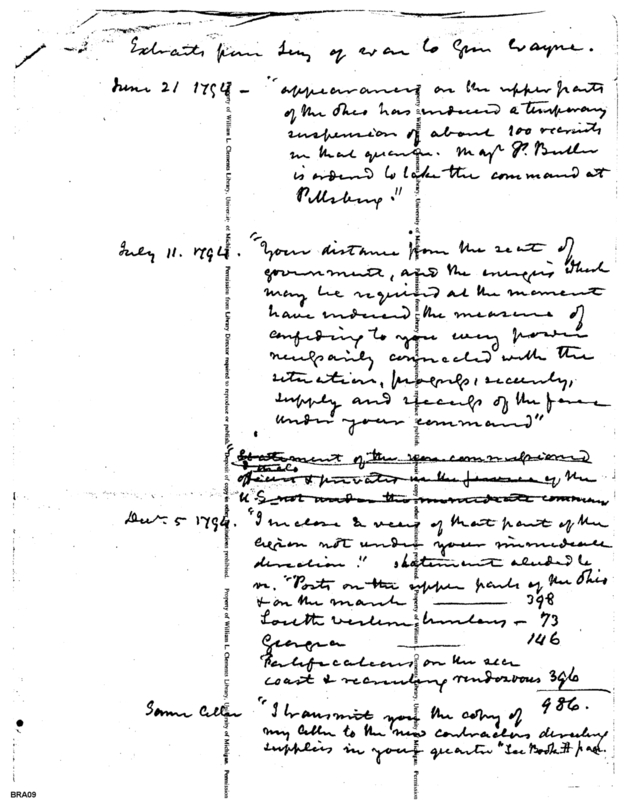 Extracts from Secy of war to Genl Wayne.
June 21 1794 - "appearances on the upper parts
of the Ohio has induced a temporary
suspension of about 100 recruits
in that quarter. Majr P. Butler
is ordered to take the command at
Pittsburg."
July 11. 1794. "Your distance from the seat of
government, and the energies which
may be required at the moment
have induced the measure of
confiding to you every power
necessarily connected with the
situation, progress, security,
supply and success of the force
under your command"
"Statement of the non commissioned
officers & privates in the service of the
U.S. not under the immediate command
Decr. 5 1794. "I inclose a view of that part of the
Legion not under your immediate
direction." Statement alluded to
"Posts on the upper parts of the Ohio
& on the march 398
South western - 73
Georgia 146
Fortifications on the sea
coast & recruiting rendezvous 396
986.
Same letter "I transmit you the copy of
my letter to the new contractors directing
supplies in your quarter" See Book # page
Property of William L. Clements Library, University of Michigan. Permission from Library Director required to reproduce or publish. Deposit of copy in other institutions prohibited.
BRA09